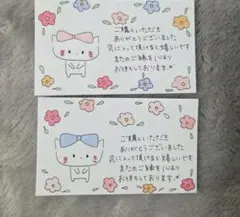 ご購入いただき
ありがとうございました
気に入って頂けると嬉しいです
またのご縁を心より
お待ちしております
ご購入いただき
ありがとうございました
気に入って頂けると嬉しいです
またのご縁を心より
お待ちしております